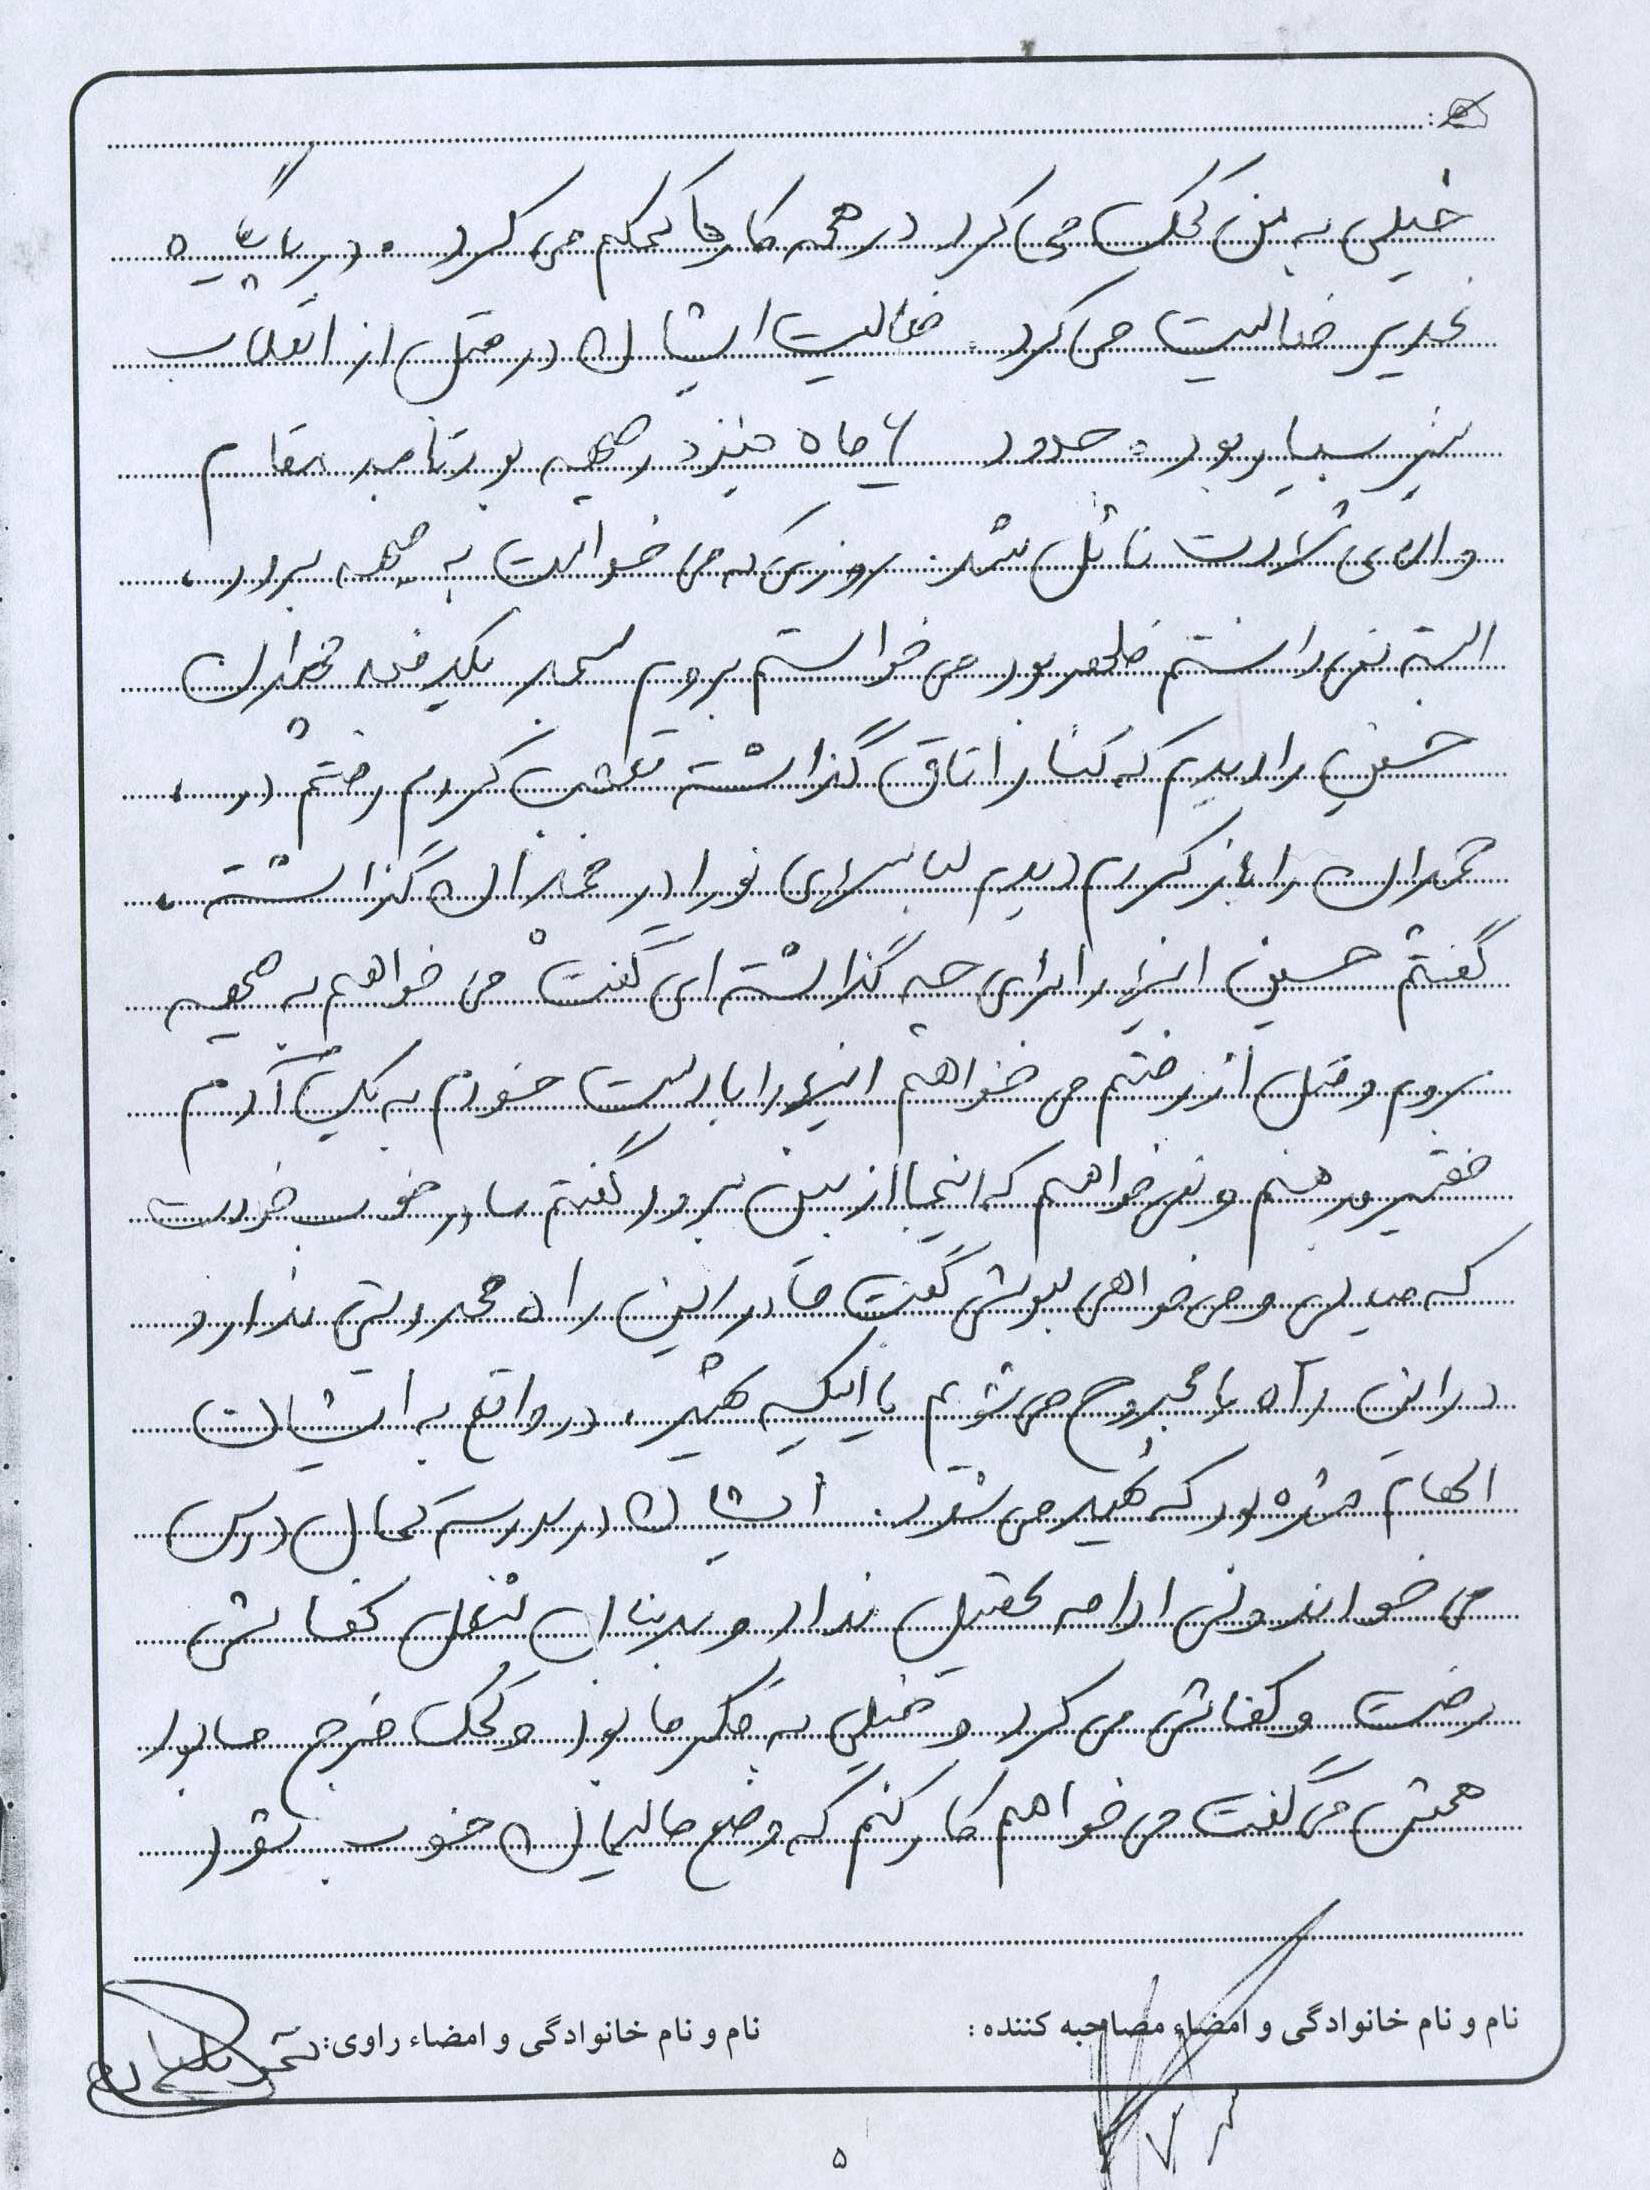 خیلی به من کمک می کرد در همه کارها کمکم می کرد . در پایگاه
غدیر فعالیت می کرد . فعالیت ایشان در قبل از انقلاب
نیز بسیار بود . حدود ۶ ماه نیز در جبهه بود تا به مقام
والای شهادت نائل شد . روزی که می خواست به جبهه برود ،
البته نمی دانستم ظهر بود می خواستم بروم مسجد یکدفعه چمدان
حسین را دیدم که کنار اتاق گذاشته تعجب کردم رفتم در ،
چمدان را باز کردم دیدم لباسهای نو را در چمدان گذاشته ،
گفتم حسین اینها را برای چه گذاشته ای گفت می خواهم به جبهه
بروم و قبل از رفتنم می خواهم اینها را با دست خودم به یک آدم
فقیر بدهم و نمی خواهم که اینجا از بین برود گفتم مادر خوب خودت
که میایی و می خواهی بپوشی گفت مادر این راه محدودیتی ندارد و
در این راه یا مجروح می شویم یا اینکه شهید ، در واقع به ایشان
الهام شده بود که شهید می شود . ایشان در مدرسه کمال درس
می خواند ولی ادامه تحصیل نداد و بدنبال شغل کفاشی
رفت و کفاشی می کرد و خیلی به فکر ما بود و کمک خرج ما بود
همش می گفت می خواهم کار کنم که وضع مالیمان خوب بشود
نام و نام خانوادگی و امضاء مصاحبه کننده :
نام و نام خانوادگی و امضاء راوی:
۵